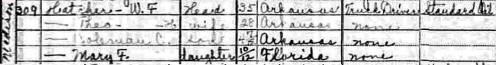 309 W. F Head 35 Arkansas Truck Driver Standard Oil
— Theo — wife 28 Arkansas none
— Coleman C. son Arkansas none
— Mary F. daughter 10/12 Florida none